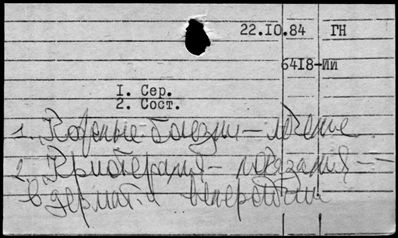 22.10.84 ГН
6418-ИИ
1. Сер.
2. Сост.
1. Кожные болезни - лечение
2. Криотерапия - показания -
в дермат. и венерологии